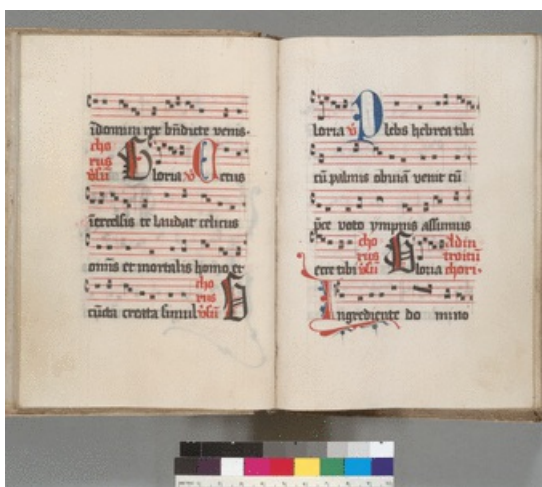 i domini rex bn̄dicte venis.
cho
rus
v̄sū Gloria v̄ Cetus
i excelsis te laudat celicus
omīs et mortalis homo et
cūcta creata simul cho
rus
v̄sū G
loria v̄ Plebs hebrea tibi
cū palmis obuiā venit cū
p̄ce voto ympnis assumus
ecce tibi cho
rus
v̄sū Gloria Ad in
troitū
chori.
Ingrediente do mino